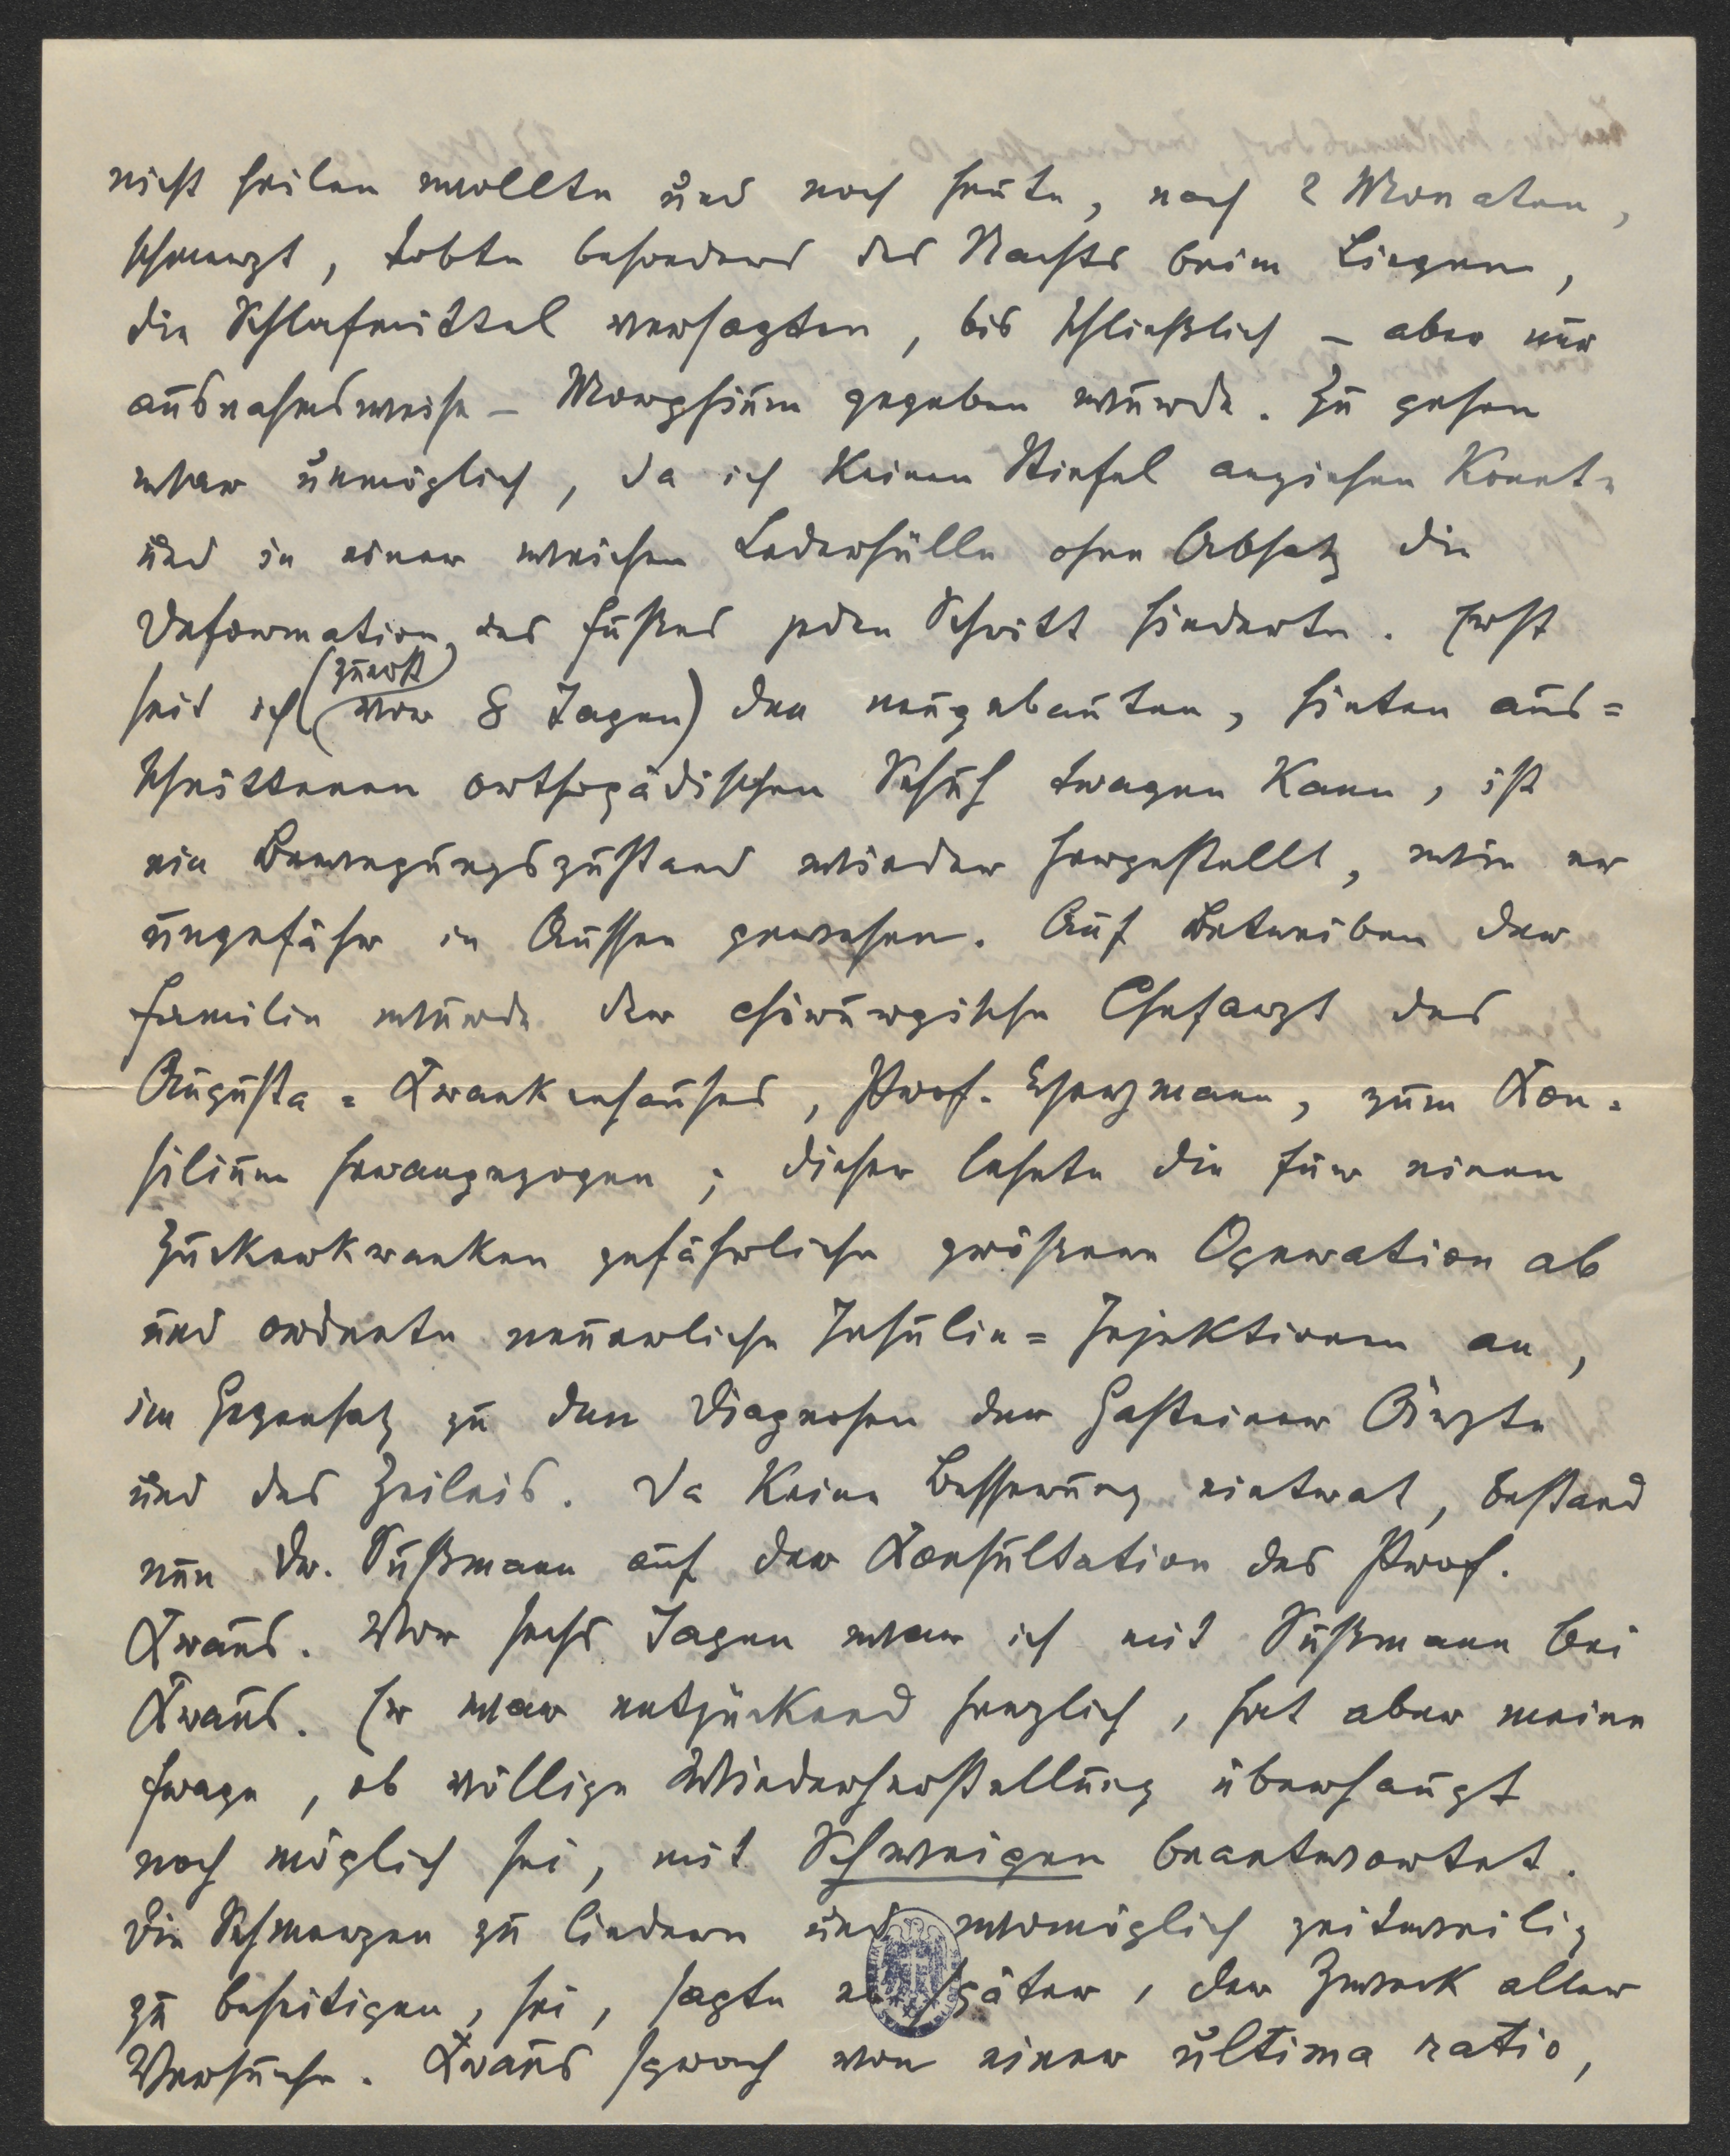 nicht heilen wollte und noch heute, nach 2 Monaten,
schmerzt, tobte besonders des Nachts beim Liegen,
die Schlafmittel versagten, bis schließlich – aber nur
ausnahmsweise – Morphium gegeben wurde. Zu gehen
war unmöglich, da ich keinen Stiefel anziehen konnte
und in einer weichen Lederhülle ohne Absatz die
Deformation des Fußes jeden Schritt hinderte. Erst
seit ich (zuerst vor 8 Tagen) den neugebauten, hinten aus=
schnittenen orthopädischen Schuh tragen kann, ist
ein Bewegungszustand wieder hergestellt, wie er
ungefähr in Aussee gewesen. Auf Betreiben der
Familie wurde der chirurgische Chefarzt des
Augusta=Krankenhauses, Prof. , zum Kon=
silium herangezogen; dieser lehnte die für einen
Zuckerkranken gefährliche größere Operation ab
und ordnete neuerliche Insulin=Injektionen an,
im Gegensatz zu den Diagnosen der Gasteiner Ärzte
und des Zeileis. Da keine Besserung eintrat, bestand
nun Dr. Sußmann auf der Konsultation des Prof.
Kraus. Vor sechs Tagen war ich mit Sußmann bei
Kraus. Er war entzückend herzlich, hat aber meine
Frage, ob völlige Wiederherstellung überhaupt
noch möglich sei, mit Schweigen beantwortet.
Die Schmerzen zu lindern und womöglich zeitweilig
zu beseitigen, sei, sagte er später, der Zweck aller
Versuche. Kraus sprach von einer ultima ratio,